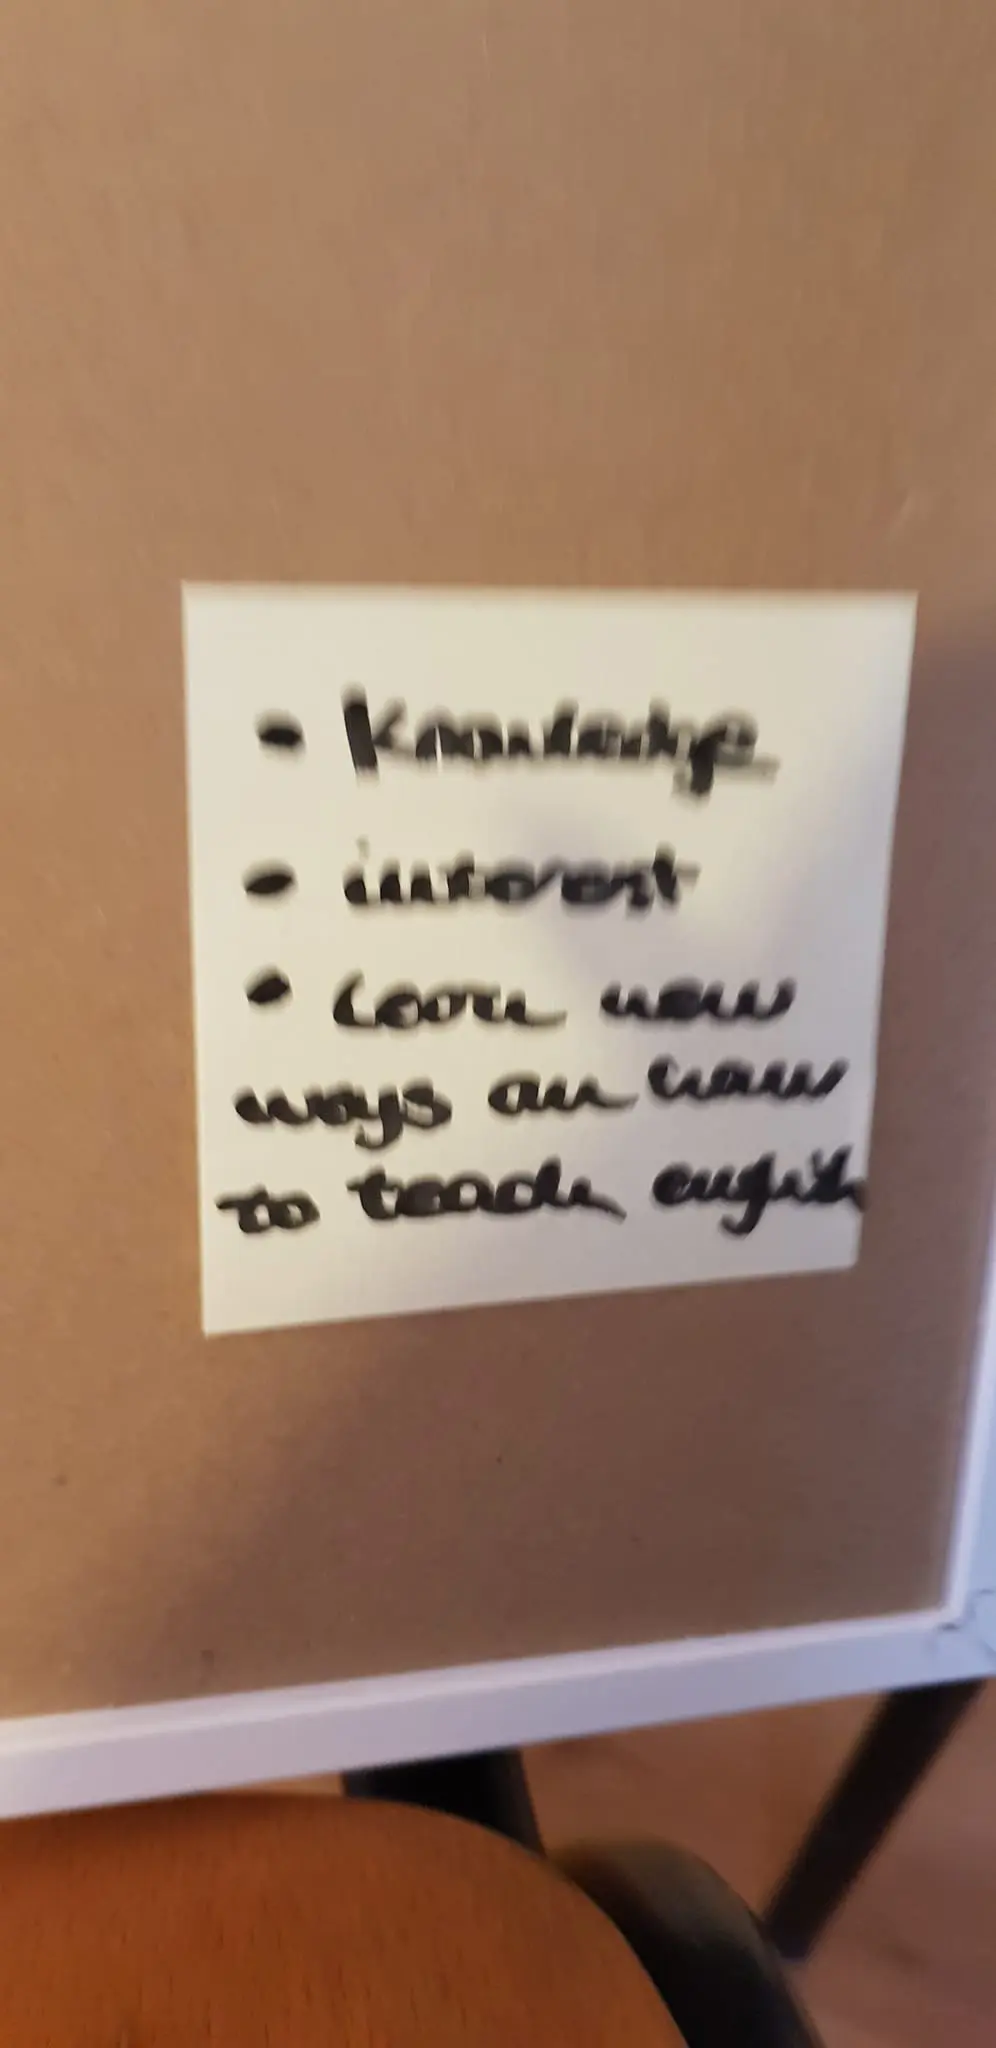 • Knowledge
• interest
• learn new
ways an how
to teach english